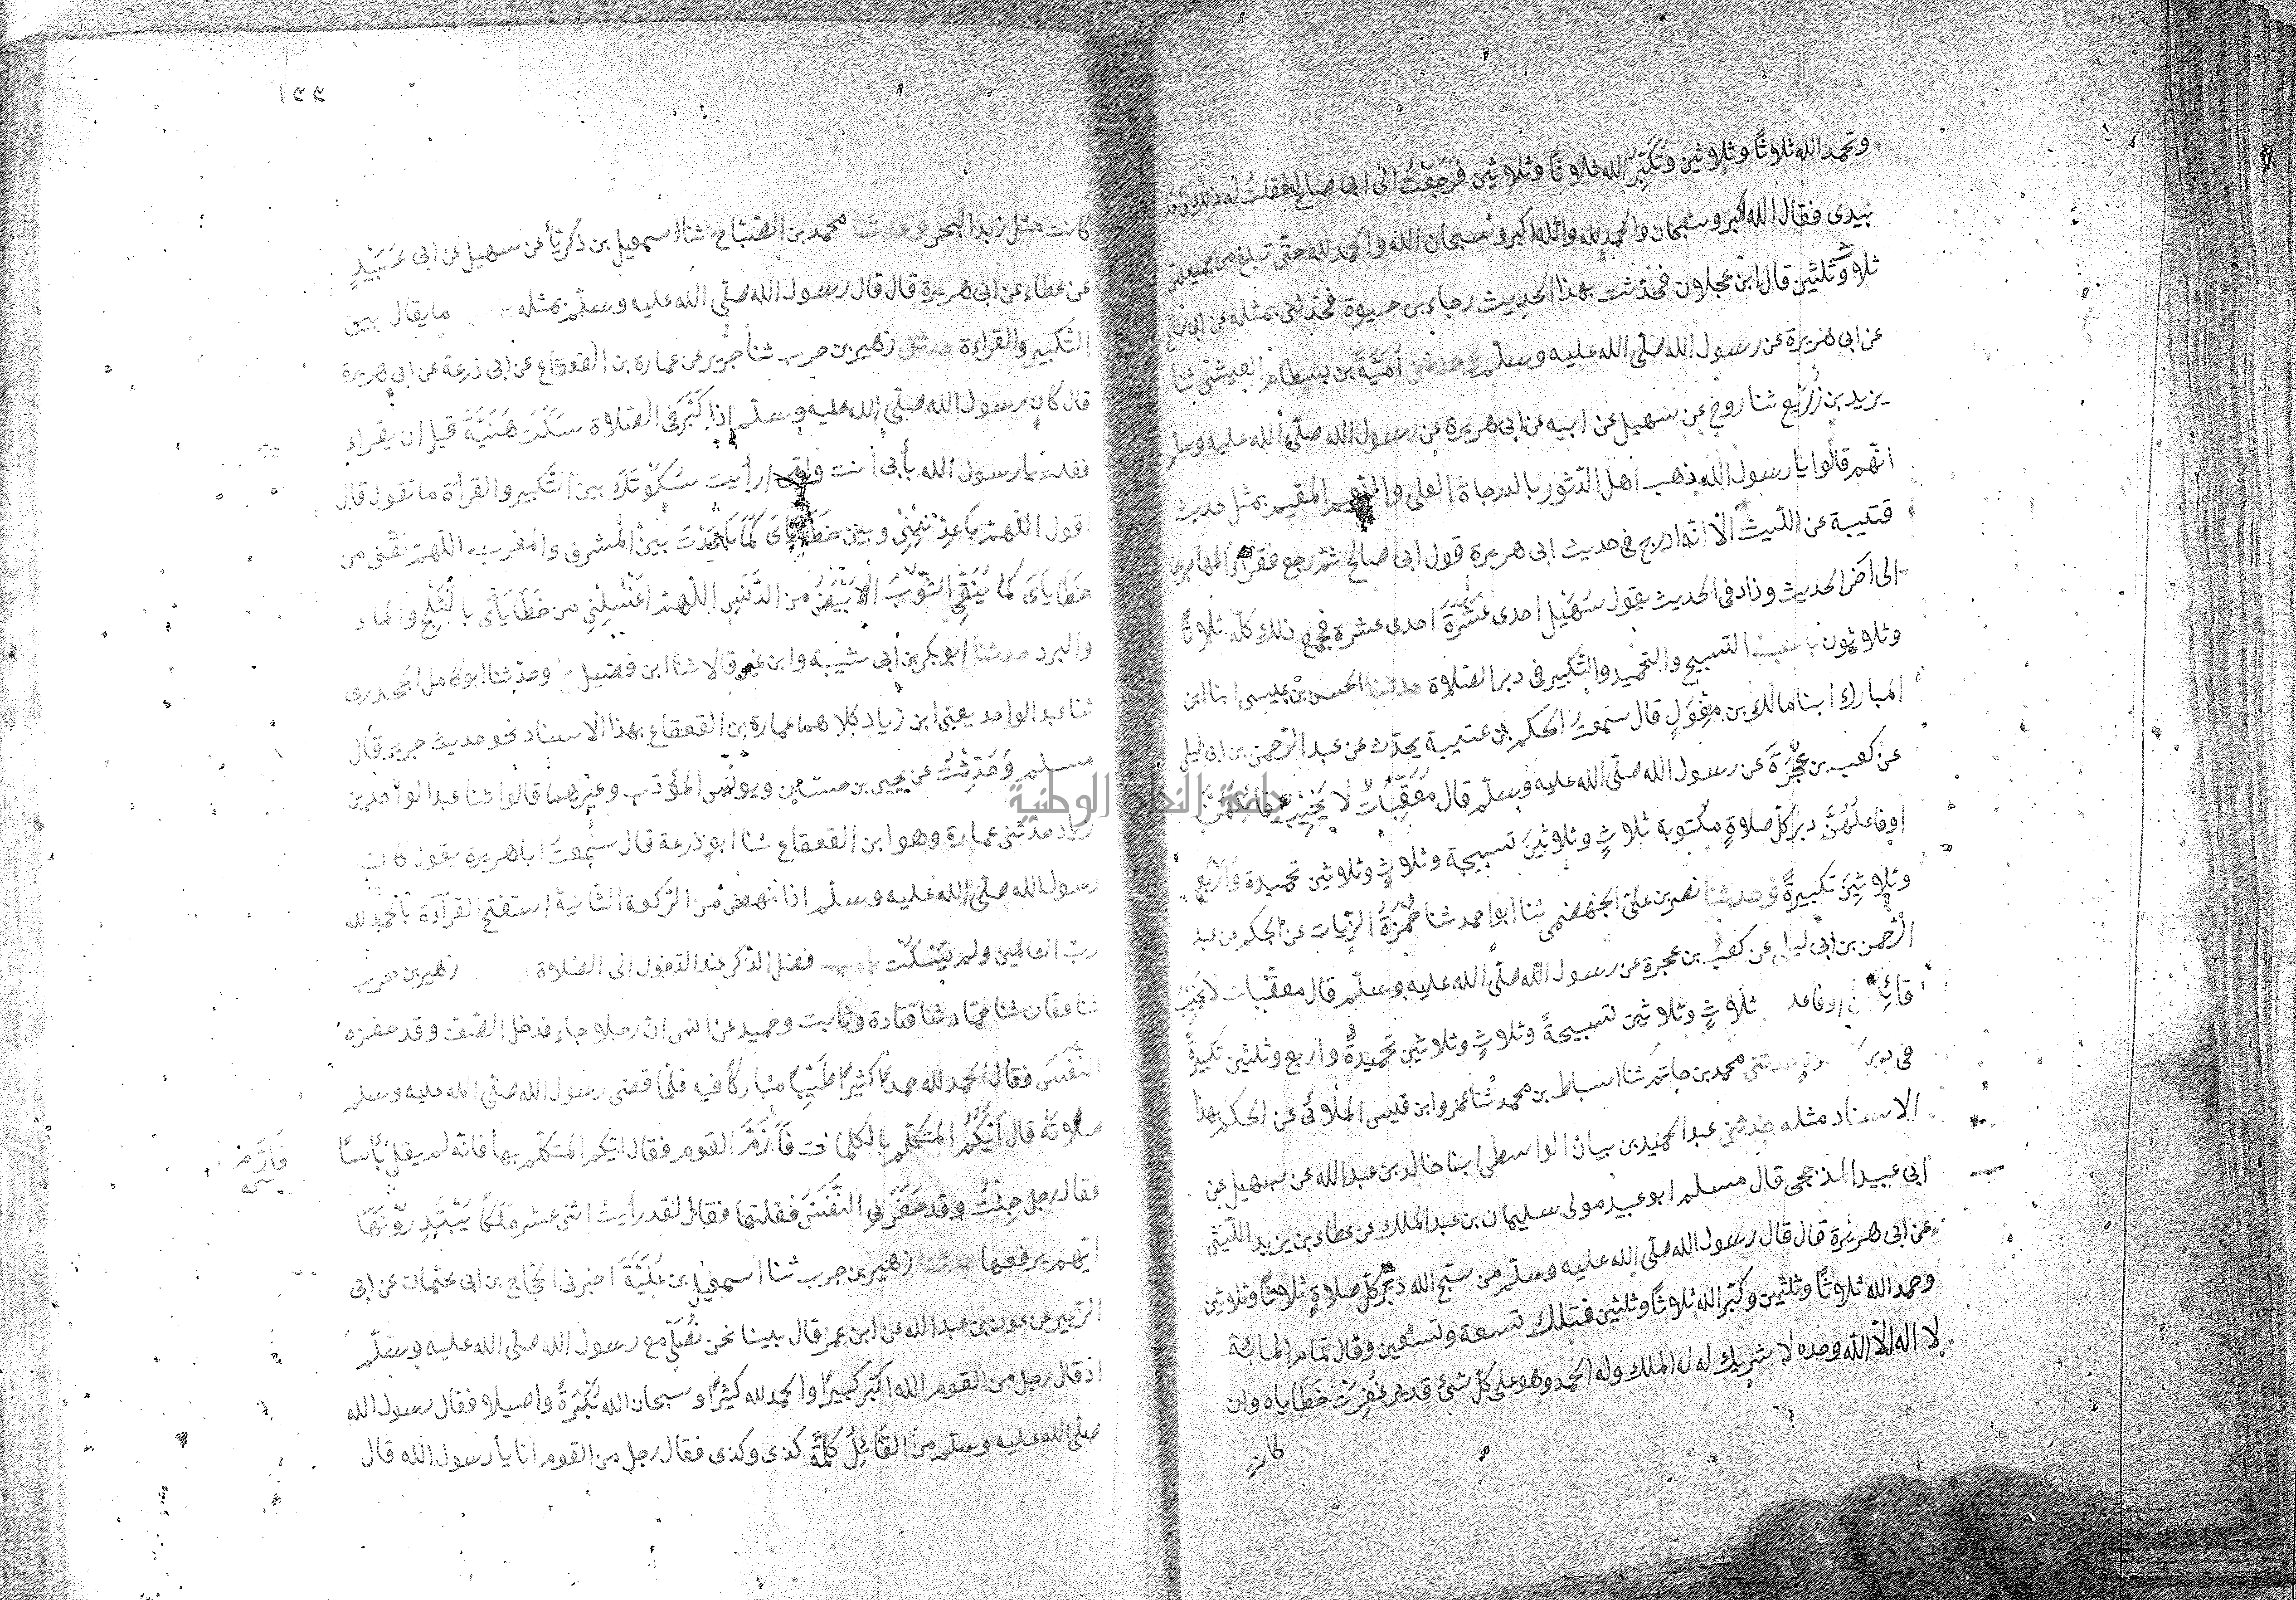 وتحمد الله ثلاثا وثلاثين وتكبر الله ثلاثا وثلاثين فرجعت الى ابى صالح فقلت له ذلك فاخذ
بيدى فقال الله اكبر وسبحان والحمد لله والله اكبر وسبحان الله والحمد لله حتى تبلغ من جميعهن
ثلاثا وثلثين قال ابن عجلان فحدثت بهذا الحديث رجاء بن حيوة فحدثنى بمثله عن ابى صالح
عن ابى هريرة عن رسول الله صلى الله عليه وسلم وحدثنى أمية بن بسطام العيشى ثنا
يزيد بن زريع ثنا روح عن سهيل عن ابيه عن ابى هريرة عن رسول الله صلى الله عليه وسلم
انهم قالوا يا رسول الله ذهب اهل الدثور بالدرجاة العلى والنعيم المقيم بمثل حديث
قتيبة عن الليث الا انه ادرج فى حديث ابى هريرة قول ابى صالح ثم رجع فقراء المهاجرين
الى اخر الحديث وزاد فى الحديث يقول سهيل احدى عشرة احدى عشرة فجمع ذلك كله ثلاثا
وثلاثون التسبيح والتحميد والتكبير فى دبر الصلاة حدثنا الحسن بن عيسى ابنا ابن
المبارك ابنا مالك بن مغول قال سمعت الحكم بن عتيبة يحدث عن عبد الرحمن بن ابى ليلى
عن كعب بن عجرة عن رسول الله صلى الله عليه وسلم قال معقبات لا يخيب قائلهن
اوفاعلهن دبر كل صلاة مكتوبة ثلاث وثلاثين تسبيحة وثلاث وثلاثين تحميدة واربع
وثلاثين تكبيرة وحدثنا نصر بن على الجهضمى ثنا ابو احمد ثنا حمزة الزيات عن الحكم عن عبد
الرحمن بن ابى ليلى عن كعب بن عجرة عن رسول الله صلى الله عليه وسلم قال معقبات لا يخيب
اوفاعل ثلاث وثلاثين تسبيحة وثلاث وثلاثين تحميدة واربع وثلثين تكبيرة
فى دبر حدثنى محمد بن حاتم ثنا اسباط بن محمد ثنا عمرو ابن قيس الملائى عن الحكم بهذا
الاسناد مثله حدثنى عبد الحميد بن بيان الواسطى ابنا خالد بن عبد الله عن سهيل عن
ابى عبيد المذحجى قال مسلم ابو عبيد مولى سليمان بن عبد الملك عن عطاء بن يزيد الليثى
عن ابى هريرة قال قال رسول الله صلى الله عليه وسلم من سبح الله دبر كل صلاة ثلاثا وثلاثين
وحمد الله ثلاثا وثلثين وكبر الله ثلاثا وثلثين فتلك تسعة وتسعين وقال تمام المائة
لا اله الا الله وحده لا شريك له له الملك وله الحمد وهو على كل شئ قدير غفرت خطاياه وان
كانت
١٥٥
كانت مثل زبد البحر وحدثنا محمد بن الصباح ثنا اسمعيل بن زكريا عن سهيل عن ابى عبيد
عن عطاء عن ابى هريرة قال قال رسول الله صلى الله عليه وسلم بمثله ما يقال بين
التكبير والقراءة حدثنى زهير بن حرب ثنا جرير عن عمارة بن القعقاع عن ابى زرعة عن ابى هريرة
قال كان رسول الله صلى الله عليه وسلم اذا كبر فى الصلاة سكت هنية قبل ان يقراء
فقلت يا رسول الله بأبى أنت وامى ارأيت سكوتك بين التكبير والقرأة ما تقول قال
اقول اللهم باعد بينى وبين خطاياى كما باعدت بين المشرق والمغرب اللهم نقنى من
خطاياى كما ينقى الثوب الابيض من الدنس اللهم اغسلنى من خطاياى بالثلج والماء
والبرد حدثنا ابو بكر بن ابى شيبة وابن نمير قالا ثنا ابن فضيل وحدثنا ابو كامل الجحدرى
ثنا عبد الواحد يعنى ابن زياد كلاهما عمارة بن القعقاع بهذا الاسناد نحو حديث جرير قال
مسلم وحدثت عن يحيى بن حسان ويونس المؤدب وغيرهما قالوا ثنا عبد الواحد بن
زياد حدثنى عمارة وهو ابن القعقاع ثنا ابو زرعة قال سمعت ابا هريرة يقول كان
رسول الله صلى الله عليه وسلم اذا نهض من الركعة الثانية استفتح القرآءة بالحمد لله
رب العالمين ولم يسكت فضل الذكر عند الدخول الى الصلاة زهير بن حرب
ثنا عفان ثنا حماد ثنا قتادة وثابت وحميد عن انس ان رجلا جاء فدخل الصف وقد حفزه
النفس فقال الحمد لله حمدا كثيرا طيبا مباركا فيه فلما قضى رسول الله صلى الله عليه وسلم
صلاته قال أيكم المتكلم بالكلمات فأرم القوم فقال ايكم المتكلم بها فانه لم يقل بأسا
فأزم
فقال رجل جئت وقد حفزنى النفس فقلتها فقال لقد رأيت اثنى عشر ملكا يبتدرونها
ايهم يرفعها حدثنا زهير بن حرب ثنا اسمعيل بن علية اخبرنى الحجاج بن ابى عثمان عن ابى
الزبير عن عون بن عبد الله عن ابن عمر قال بينا نحن نصلى مع رسول الله صلى الله عليه وسلم
اذ قال رجل من القوم الله اكبر كبيرا والحمد لله كثيرا وسبحان الله بكرة واصيلا فقال رسول الله
صلى الله عليه وسلم من القائل كلمة كذى وكذى فقال رجل من القوم انا يا رسول الله قال
جامعة النجاح الوطنية